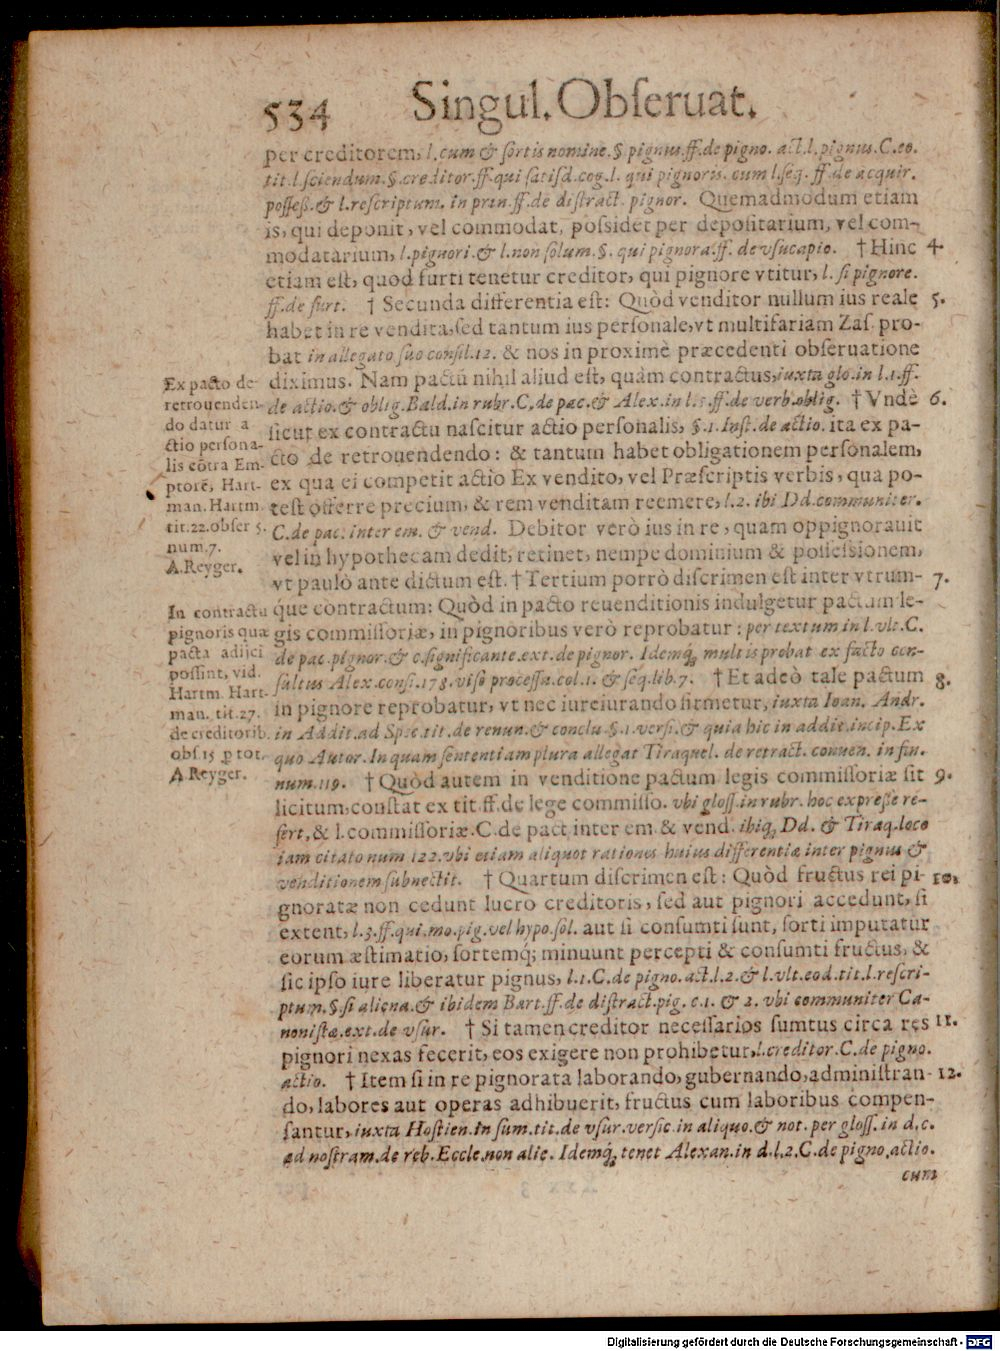 534 Singul. Obſeruat.
per creditorem, l. cum & ſortis nomine. §. pignus. ff. de pigno. act. l. pignus. C. eo.
tit. l. ſciendum. §. creditor. ff. qui ſatiſd. cog. l. qui pignoris. cum l. ſeq. ff. de acquir.
poſſeß. & l. reſcriptum. in prin. ff. de diſtract. pignor. Quemadmodum etiam
is, qui deponit, vel commodat, poſsidet per depoſitarium, vel com-
modatarium, l. pignori. & l. non ſolum. §. qui pignora. ff. de vſucapio. † Hinc 4.
etiam eſt, quod furti tenetur creditor, qui pignore vtitur, l. ſi pignore.
ff. de furt. † Secunda differentia eſt: Quòd venditor nullum ius reale 5.
habet in re vendita, ſed tantum ius perſonale, vt multifariam Zaſ. pro-
bat in allegato ſuo conſil. 12. & nos in proximè præcedenti obſeruatione
diximus. Nam pactū nihil aliud eſt, quàm contractus, iuxta glo. in l. 1. ff.
de actio. & oblig. Bald. in rubr. C. de pac. & Alex. in l. 5. ff. de verb. oblig. † Vndè 6.
ſicut ex contractu naſcitur actio perſonalis, §. 1. Inſt. de actio. ita ex pa-
cto de retrouendendo: & tantum habet obligationem perſonalem,
ex qua ei competit actio Ex vendito, vel Præſcriptis verbis, qua po-
teſt offerre precium, & rem venditam reemere, l. 2. ibi Dd. communiter.
C. de pac. inter em. & vend. Debitor verò ius in re, quam oppignorauit
vel in hypothecam dedit, retinet, nempe dominium & poſſeſsionem,
vt paulò ante dictum eſt. † Tertium porrò diſcrimen eſt inter vtrum- 7.
que contractum: Quòd in pacto reuenditionis indulgetur pactum le-
gis commiſſoriæ, in pignoribus verò reprobatur: per textum in l. vlt. C.
de pac. pignor. & c. ſignificante. ext. de pignor. Idemq́; multis probat ex facto con-
ſultus Alex. conſi. 178. viſo proceſſu. col. 1. & ſeq. lib. 7. † Et adeò tale pactum 8.
in pignore reprobatur, vt nec iureiurando firmetur, iuxta Ioan. Andr.
in Addit. ad Spec. tit. de renun. & conclu. §. 1. verſi. & quia hic in addit. incip. Ex
quo Autor. In quam ſententiam plura allegat Tiraquel. de retract. conuen. in fin.
num. 119. † Quòd autem in venditione pactum legis commiſſoriæ ſit 9.
licitum, conſtat ex tit. ff. de lege commiſſo. vbi gloſſ. in rubr. hoc expreſſe re-
fert, & l. commiſſoriæ. C. de pact. inter em. & vend. ibiq́; Dd. & Tiraq. loco
iam citato num 122. vbi etiam aliquot rationes huius differentiæ inter pignus &
venditionem ſubnectit. † Quartum diſcrimen eſt: Quòd fructus rei pi- 10.
gnoratæ non cedunt lucro creditoris, ſed aut pignori accedunt, ſi
extent, l. 3. ff. qui. mo. pig. vel hypo. ſol. aut ſi conſumti ſunt, ſorti imputatur
eorum æſtimatio, ſortemq́; minuunt percepti & conſumti fructus, &
ſic ipſo iure liberatur pignus, l. 1. C. de pigno. act. l. 2. & l. vlt. eod. tit. l. reſcri-
ptum. §. ſi aliena. & ibidem Bart. ff. de diſtract. pig. c. 1. & 2. vbi communiter Ca-
noniſtæ. ext. de vſur. † Si tamen creditor neceſſarios ſumtus circa res 11.
pignori nexas fecerit, eos exigere non prohibetur, l. creditor. C. de pigno.
actio. † Item ſi in re pignorata laborando, gubernando, adminiſtran- 12.
do, labores aut operas adhibuerit, fructus cum laboribus compen-
ſantur, iuxta Hoſtien. in ſum. tit. de vſur. verſic. in aliquo. & not. per gloſſ. in d. c.
ad noſtram. de reb. Eccle. non alie. Idemq́; tenet Alexan. in d. l. 2. C. de pigno. actio.
cum
Ex pacto de
retrouenden-
do datur a
ctio perſona-
lis cōtra Em-
ptorē, Hart-
man. Hartm.
tit. 22. obſer 5.
num. 7.
A. Reyger.
In contractu
pignoris quæ
pacta adijci
poſſint, vid.
Hartm. Hart-
man. tit. 27.
de creditorib.
obſ. 15 ꝑ tot.
A. Reyger.
Digitalisierung gefördert durch die Deutsche Forschungsgemeinschaft - DFG